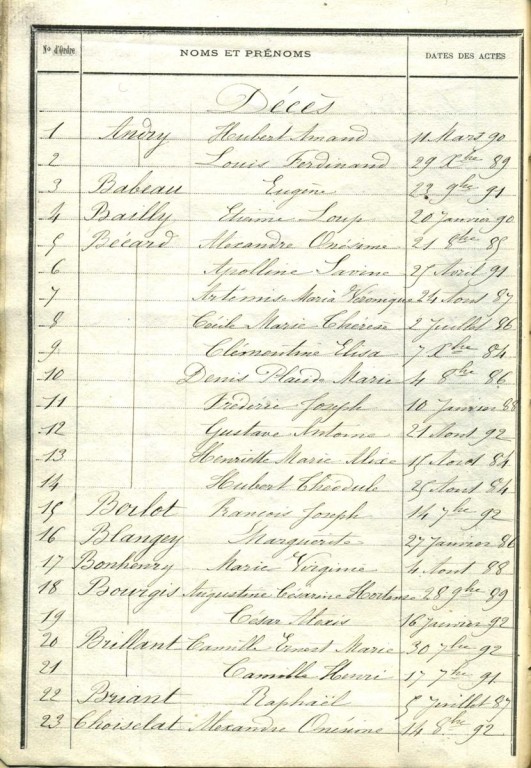 Nos d'Ordre NOMS ET PRÉNOMS DATES DES ACTES
Décès
1 Andry Hubert Amand 11 Mars 90
2 Louis Ferdinand 29 Xbre 89
3 Babeau Eugène 22 9bre 91
4 Bailly Etienne Loup 20 Janvier 90
5 Bécard Alexandre Onésime 21 8bre 85
6 Apolline Savine 25 Avril 91
7 Artémise Maria Véronique 24 Aout 87
8 Cécile Marie Thérèse 2 Juillet 86
9 Clémentine Elisa 7 Xbre 84
10 Denis Placide Marie 4 8bre 86
11 Frédéric Joseph 10 Janvier 88
12 Gustave Antoine 21 Aout 92
13 Henriette Marie Alixe 15 Aout 84
14 Hubert Théodule 25 Aout 84
15 Borlot François Joseph 14 7bre 92
16 Blangey Marguerite 27 Janvier 86
17 Bonhenry Marie Virginie 4 Aout 88
18 Bourgis Augustine Césarine Hortense 28 9bre 89
19 César Alexis 16 Janvier 92
20 Brillant Camille Ernest Marie 30 7bre 92
21 Camille Henri 17 7bre 91
22 Briant Raphaël 5 Juillet 87
23 Choiselat Alexandre Onésime 14 8bre 92